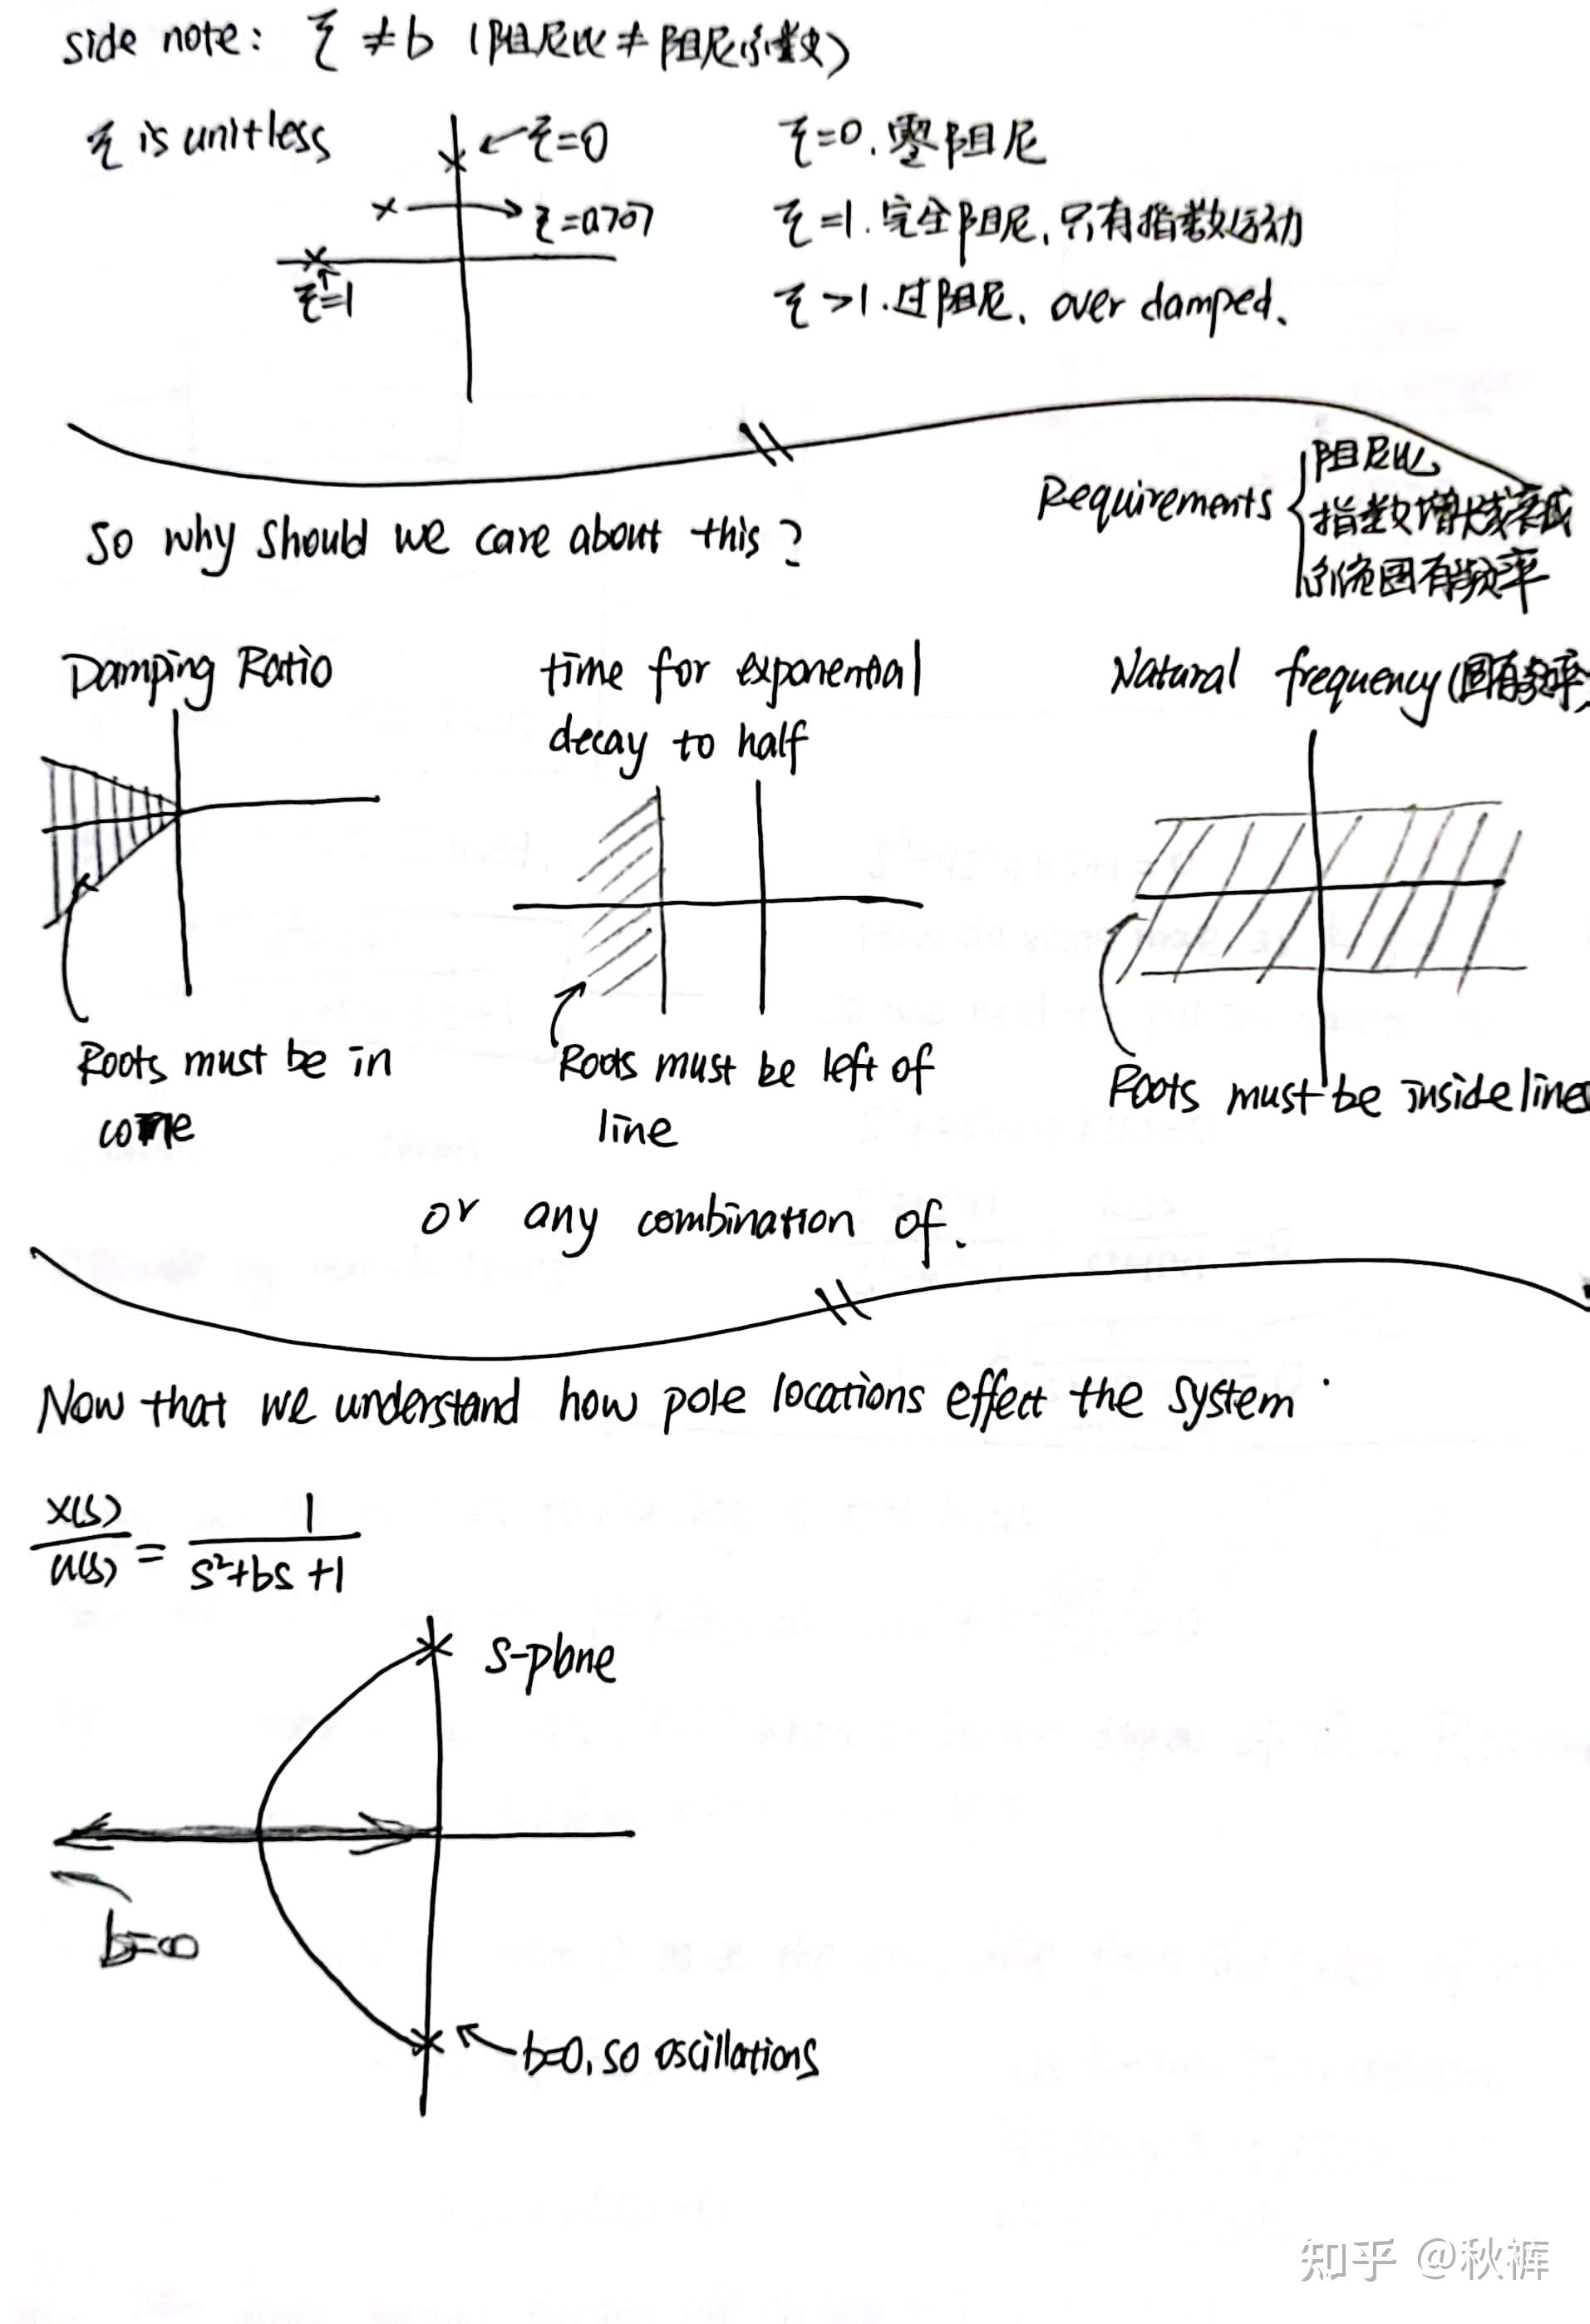 side note: ξ ≠ b (阻尼比 ≠ 阻尼系数)
ξ is unitless
ξ=0
ξ=0.707
ξ=1
ξ=0. 零阻尼
ξ=1. 完全阻尼, 只有指数运动
ξ>1. 过阻尼, over damped.
So why should we care about this?
Requirements
阻尼比
指数增长或衰减
系统固有频率
Damping Ratio
Roots must be in
cone
time for exponential
decay to half
Roots must be left of
line
Natural frequency (固有频率)
Roots must be inside lines
or any combination of.
Now that we understand how pole locations effect the system.
X(s)/U(s) = 1/(s²+bs+1)
S-plane
b=∞
b=0, so oscillations
知乎 @秋裤